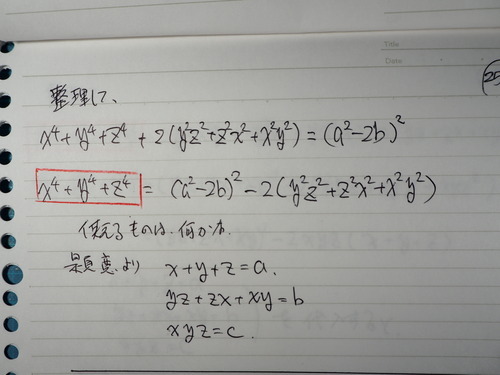 Title
Date
25
整理して、
x⁴+y⁴+z⁴+2(y²z²+z²x²+x²y²)=(a²-2b)²
x⁴+y⁴+z⁴=(a²-2b)²-2(y²z²+z²x²+x²y²)
使えるものは、何か?
題意より x+y+z=a.
yz+zx+xy=b
xyz=c.